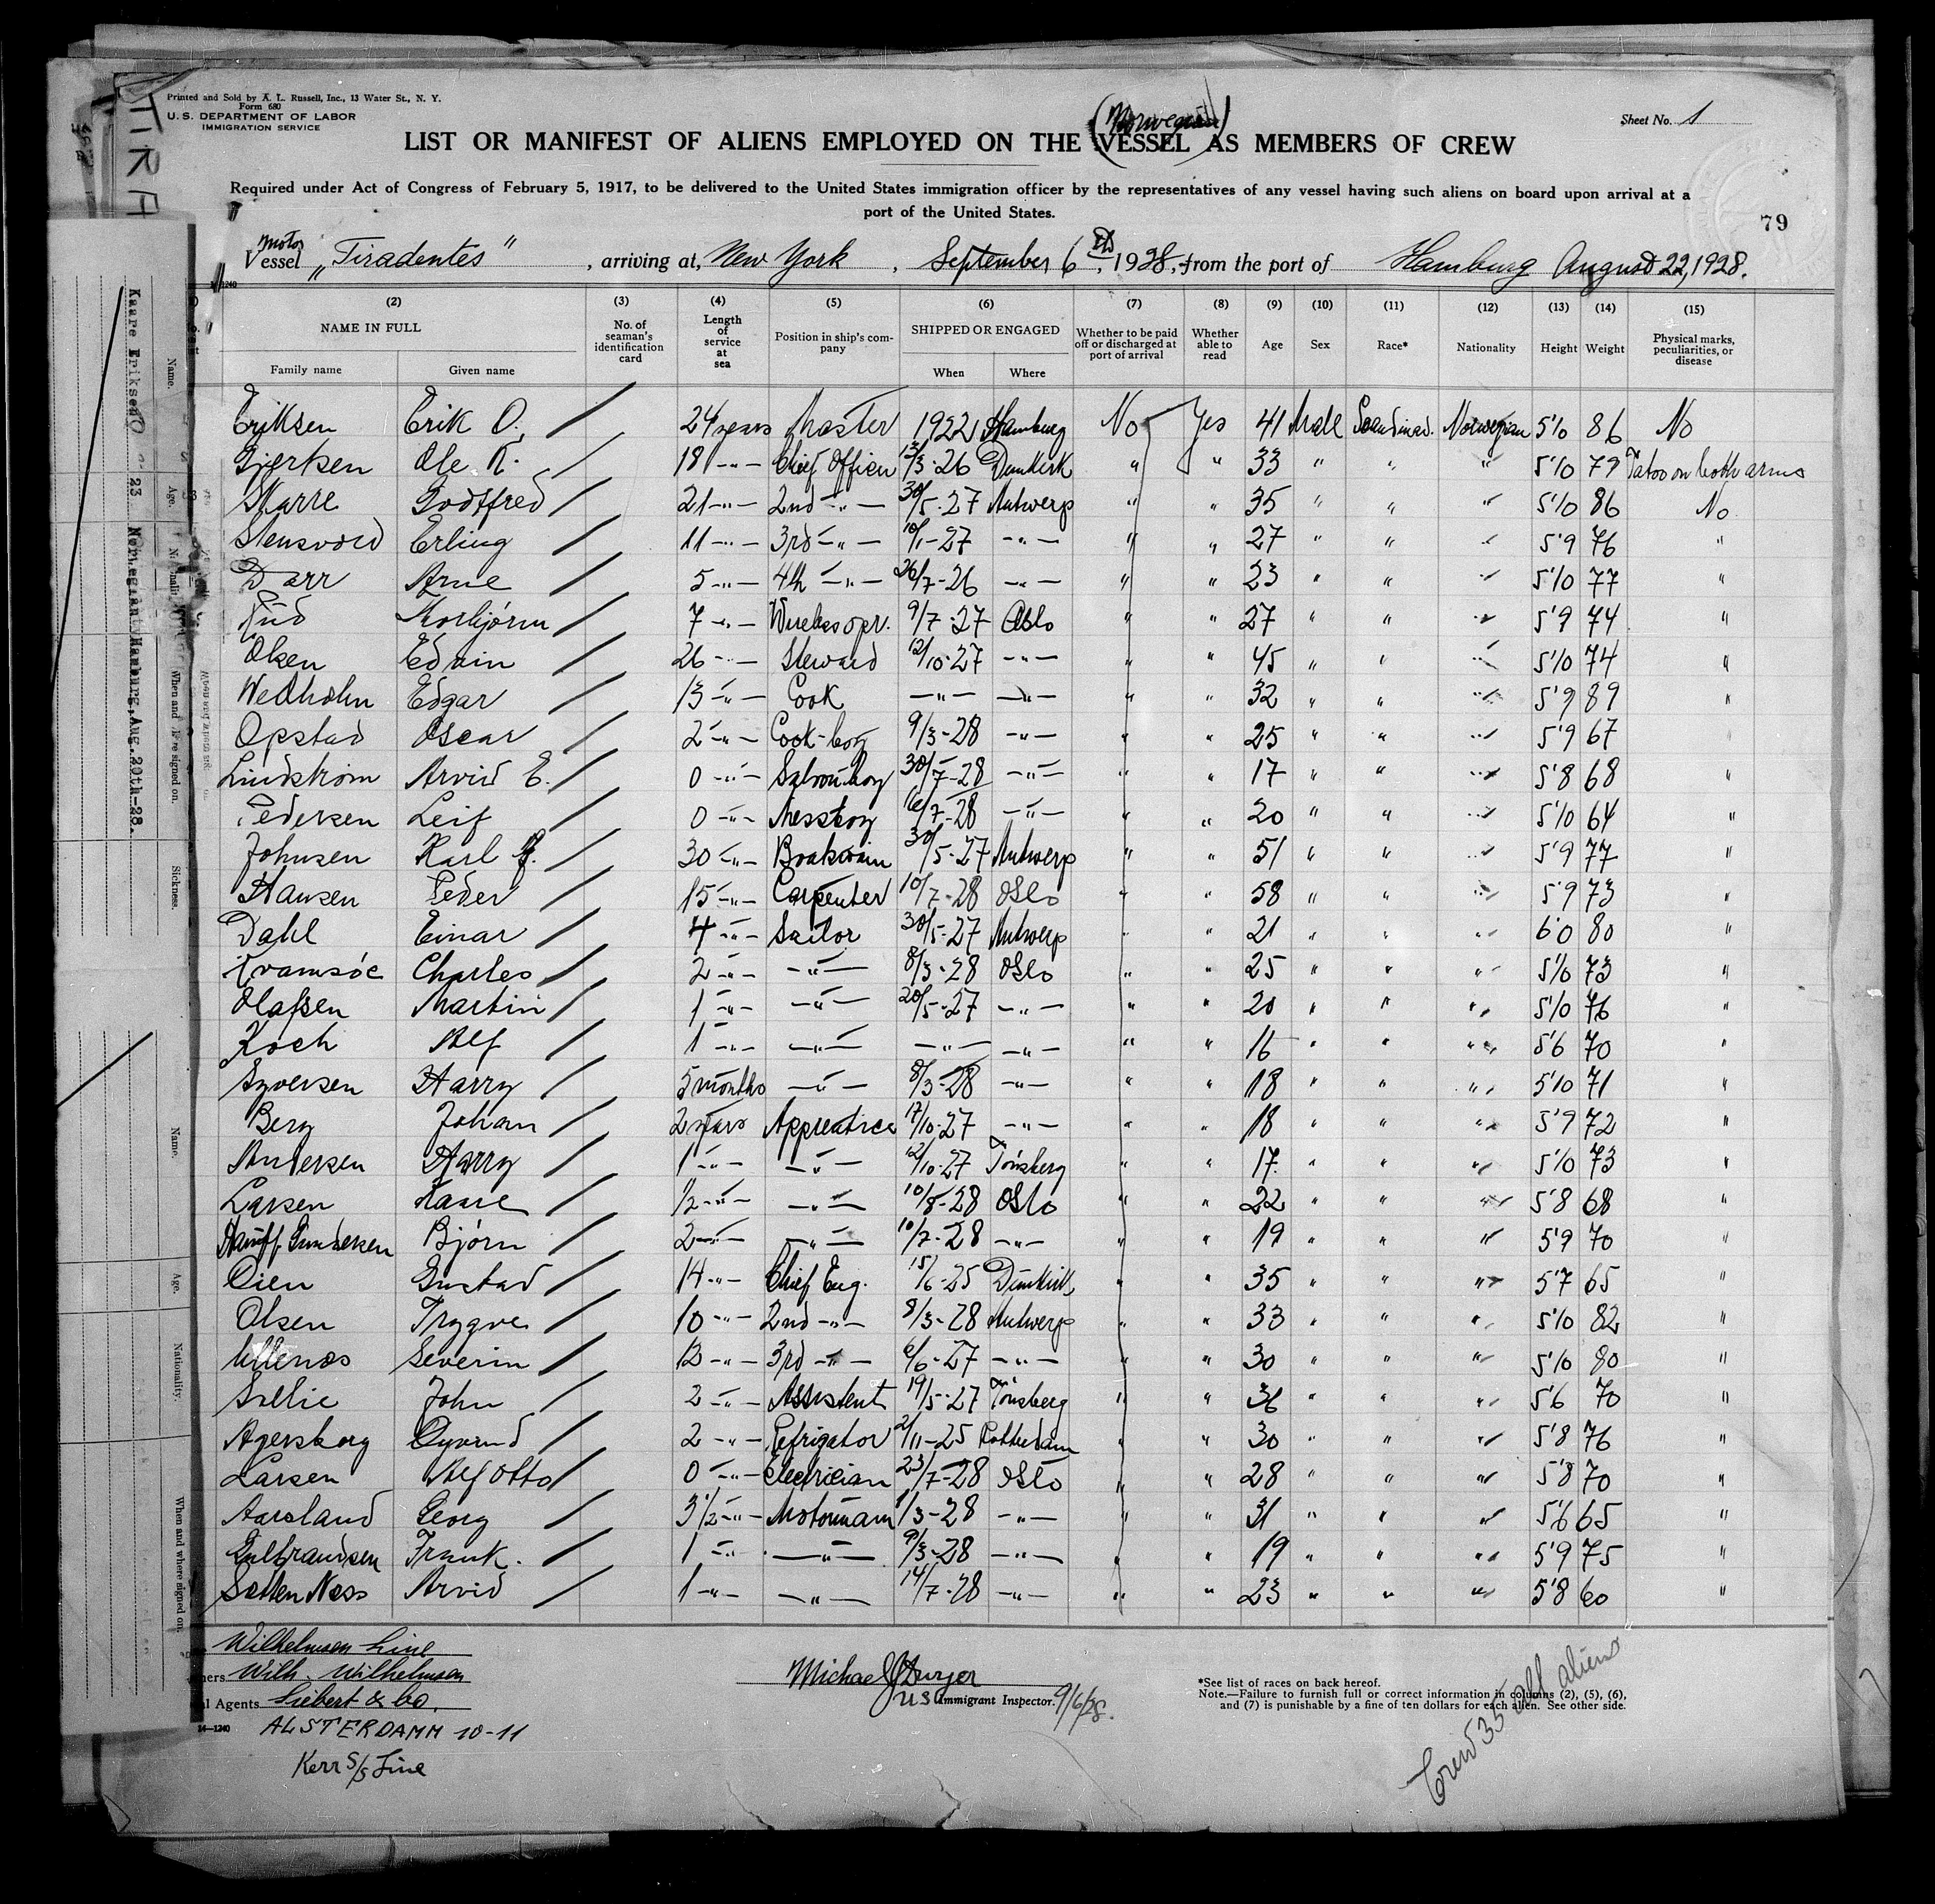 Printed and Sold by A. L. Russell, Inc., 13 Water St., N. Y.
Form 680
U. S. DEPARTMENT OF LABOR
IMMIGRATION SERVICE
Sheet No. 1
(Norwegian)
LIST OR MANIFEST OF ALIENS EMPLOYED ON THE VESSEL AS MEMBERS OF CREW
Required under Act of Congress of February 5, 1917, to be delivered to the United States immigration officer by the representatives of any vessel having such aliens on board upon arrival at a
port of the United States.
79
Motor
Vessel „Tiradentes", arriving at, New York, September 6th, 1928, from the port of Hamburg August 22, 1928.
(2) (3) (4) (5) (6) (7) (8) (9) (10) (11) (12) (13) (14) (15)
NAME IN FULL No. of seaman's identification card Length of service at sea Position in ship's company SHIPPED OR ENGAGED Whether to be paid off or discharged at port of arrival Whether able to read Age Sex Race* Nationality Height Weight Physical marks, peculiarities, or disease
Family name Given name When Where
Eriksen Erik O. / 24 years Master 1922 Hamburg No Yes 41 Male Scandinav. Norwegian 5'10 86 No
Gjertsen Ole K. / 18 -"- Chief Officer 13/3-26 Dunkirk " " 33 " " " 5'10 79 Tatoo on both arms
Skarre Godtfred / 21 -"- 2nd -"- 30/5-27 Antwerp " " 35 " " " 5'10 86 No
Stensvold Erling / 11 -"- 3rd -"- 10/1-27 -"- " " 27 " " " 5'9 76 "
Darr Arne / 5 -"- 4th -"- 26/7-26 -"- " " 23 " " " 5'10 77 "
Rud Thorbjørn / 7 -"- Wireless opr. 9/7-27 Oslo " " 27 " " " 5'9 74 "
Olsen Edvin / 26 -"- Steward 12/10-27 -"- " " 45 " " " 5'10 74 "
Wedholm Edgar / 13 -"- Cook -"- -"- " " 32 " " " 5'9 89 "
Opstad Oscar / 2 -"- Cook-boy 9/3-28 -"- " " 25 " " " 5'9 67 "
Lindstrøm Arvid E. / 0 -"- Saloonboy 30/7-28 -"- " " 17 " " " 5'8 68 "
Pedersen Leif / 0 -"- Messboy 16/7-28 -"- " " 20 " " " 5'10 64 "
Johnsen Karl / 30 -"- Boatswain 30/5-27 Antwerp " " 51 " " " 5'9 77 "
Hansen Peder / 15 -"- Carpenter 10/7-28 Oslo " " 58 " " " 5'9 73 "
Dahl Einar / 4 -"- Sailor 30/5-27 Antwerp " " 21 " " " 6'0 80 "
Kvamsöe Charles / 2 -"- -"- 8/3-28 Oslo " " 25 " " " 5'10 73 "
Olafsen Martin / 1 -"- -"- 20/5-27 -"- " " 20 " " " 5'10 76 "
Koch Alf / 1 -"- -"- -"- -"- " " 16 " " " 5'6 70 "
Syversen Harry / 5 months -"- 8/3-28 -"- " " 18 " " " 5'10 71 "
Berg Johan / 2 years Apprentice 17/10-27 -"- " " 18 " " " 5'9 72 "
Andersen Harry / 1 -"- -"- 12/10-27 Tönsberg " " 17 " " " 5'10 73 "
Larsen Kaare / 1/2 -"- -"- 10/8-28 Oslo " " 22 " " " 5'8 68 "
Hauff-Gundersen Bjørn / 2 -"- -"- 10/7-28 -"- " " 19 " " " 5'9 70 "
Oien Gustad / 14 -"- Chief Eng. 15/6-25 Dunkirk " " 35 " " " 5'7 65 "
Olsen Trygve / 10 -"- 2nd -"- 8/3-28 Antwerp " " 33 " " " 5'10 82 "
Ullenæs Severin / 13 -"- 3rd -"- 6/6-27 -"- " " 30 " " " 5'10 80 "
Sollie John / 2 -"- Assistent 19/5-27 Tönsberg " " 36 " " " 5'6 70 "
Agersborg Öyvind / 2 -"- Refrigator 2/11-25 Rotterdam " " 30 " " " 5'8 76 "
Larsen Alf Otto / 0 -"- Electrician 23/7-28 Oslo " " 28 " " " 5'8 70 "
Aarsland Georg / 3 1/2 -"- Motormann 1/3-28 -"- " " 31 " " " 5'6 65 "
Gulbrandsen Frank. / 1 -"- -"- 9/3-28 -"- " " 19 " " " 5'9 75 "
Sætten Næss Arvid / 1 -"- -"- 14/7-28 -"- " " 23 " " " 5'8 60 "
Wilhelmsen Line
Wilh. Wilhelmsen
Agents Siebert & Co.
14-1240
ALSTERDAMM 10-11
Kerr S/S Line
Michael J
US Immigrant Inspector. 9/6/28.
*See list of races on back hereof.
Note.—Failure to furnish full or correct information in columns (2), (5), (6),
and (7) is punishable by a fine of ten dollars for each alien. See other side.
Crew 35 all aliens
Kaare Eriksen 23 Norweg. Hamburg, Aug. 20th-28.
Name.
Age.
When and where signed on.
Sickness.
Name.
Age.
Nationality.
When and where signed on.